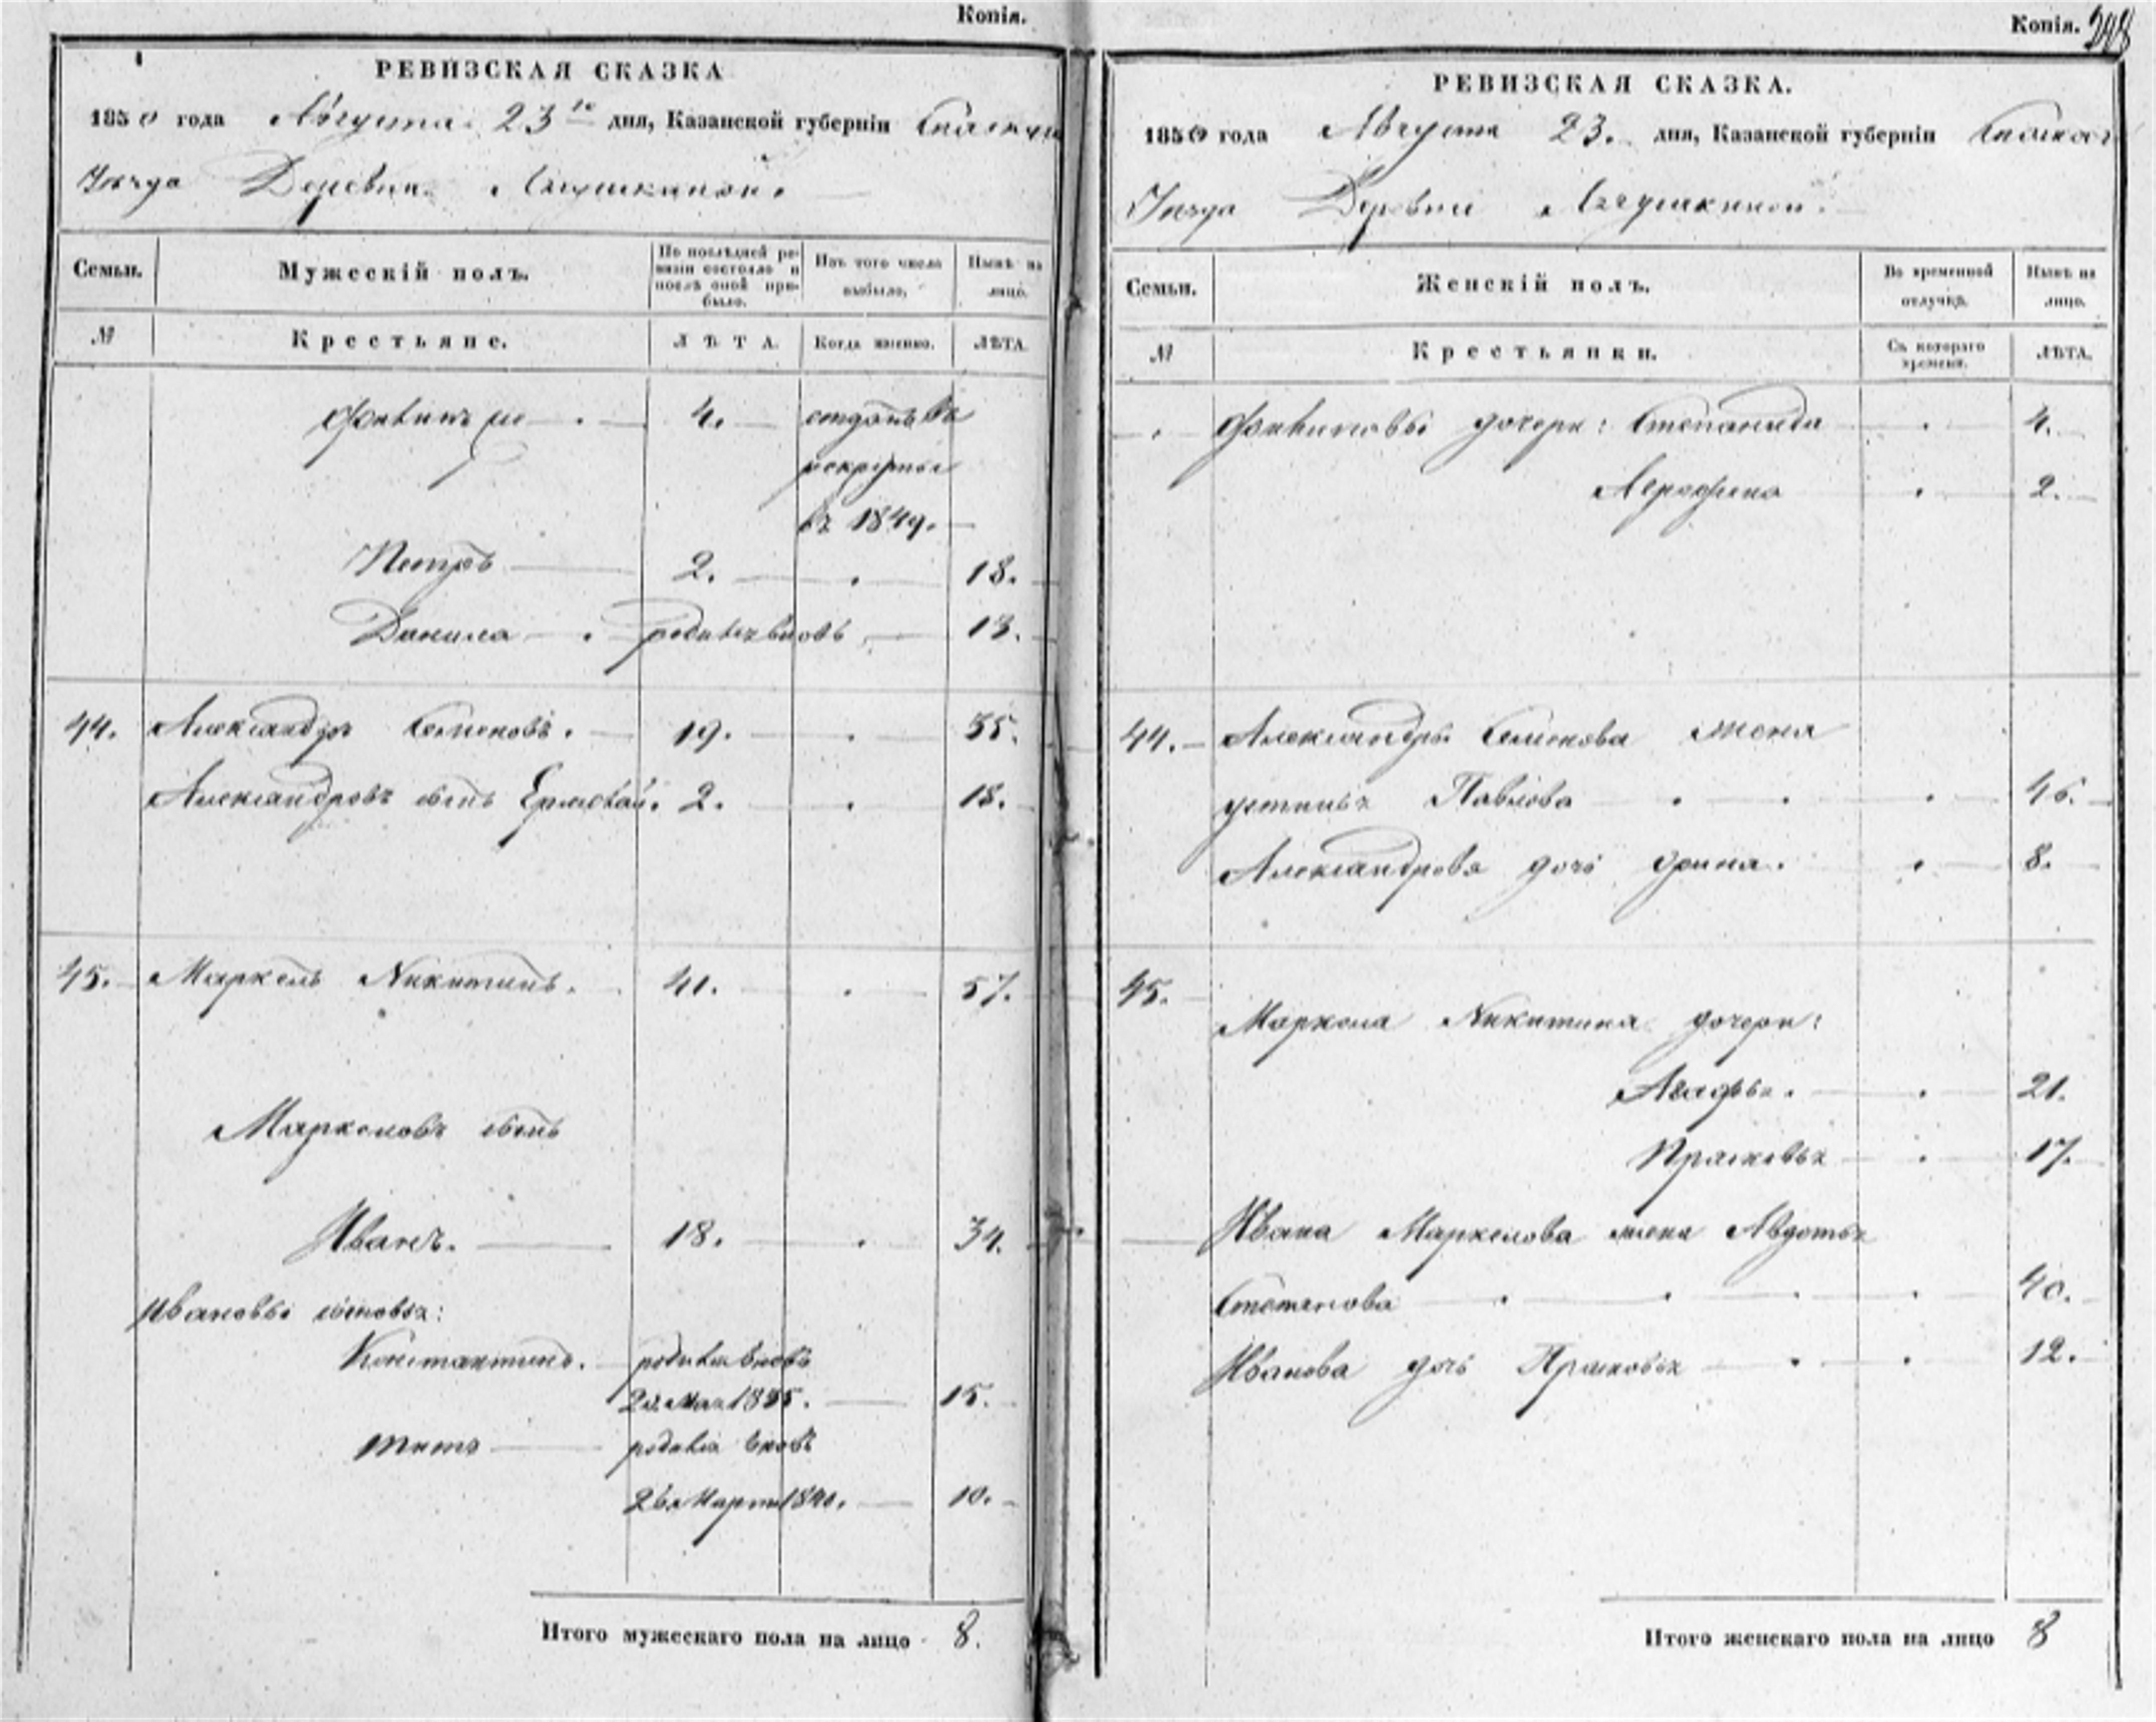 Копія.
РЕВИЗСКАЯ СКАЗКА
1850 года Августа 23 го дня, Казанской губерніи
Уѣзда Деревни
Семьи.
Мужескій полъ.
По послѣдней ревизіи состояло и послѣ оной прибыло.
Изъ того числа выбыло.
Нынѣ на лицо.
№
Крестьяне.
ЛѢТА.
Когда именно.
ЛѢТА
4. отданъ въ
рекруты
въ 1849.
Петръ 2. 18.
Данила родился вновь 13.
44. Александръ Семеновъ. 19. 35.
Александровъ сынъ Ермолай. 2. 18.
45. Маркелъ Никитинъ. 41. 57.
Маркеловъ сынъ
Иванъ. 18. 34.
Ивановы сыновья:
Константинъ. родился вновь
Мая 1835. 15.
Титъ родился вновь
26 Марта 1840. 10.
Итого мужескаго пола на лицо 8.
Копія.
РЕВИЗСКАЯ СКАЗКА.
1850 года Августа 23. дня, Казанской губерніи
Уѣзда Деревни
Семьи.
Женскій полъ.
Во временной отлучкѣ.
Нынѣ на лицо.
№
Крестьянки.
Съ котораго времени.
ЛѢТА.
дочери: Степанида 4.
2.
44. Александра Семенова жена
Устинья Павлова 46.
Александрова дочь Ирина. 8.
45.
Маркела Никитина дочери:
Агафья. 21.
Прасковья 17.
Ивана Маркелова жена Авдотья
Степанова 40.
Иванова дочь Прасковья 12.
Итого женскаго пола на лицо 8